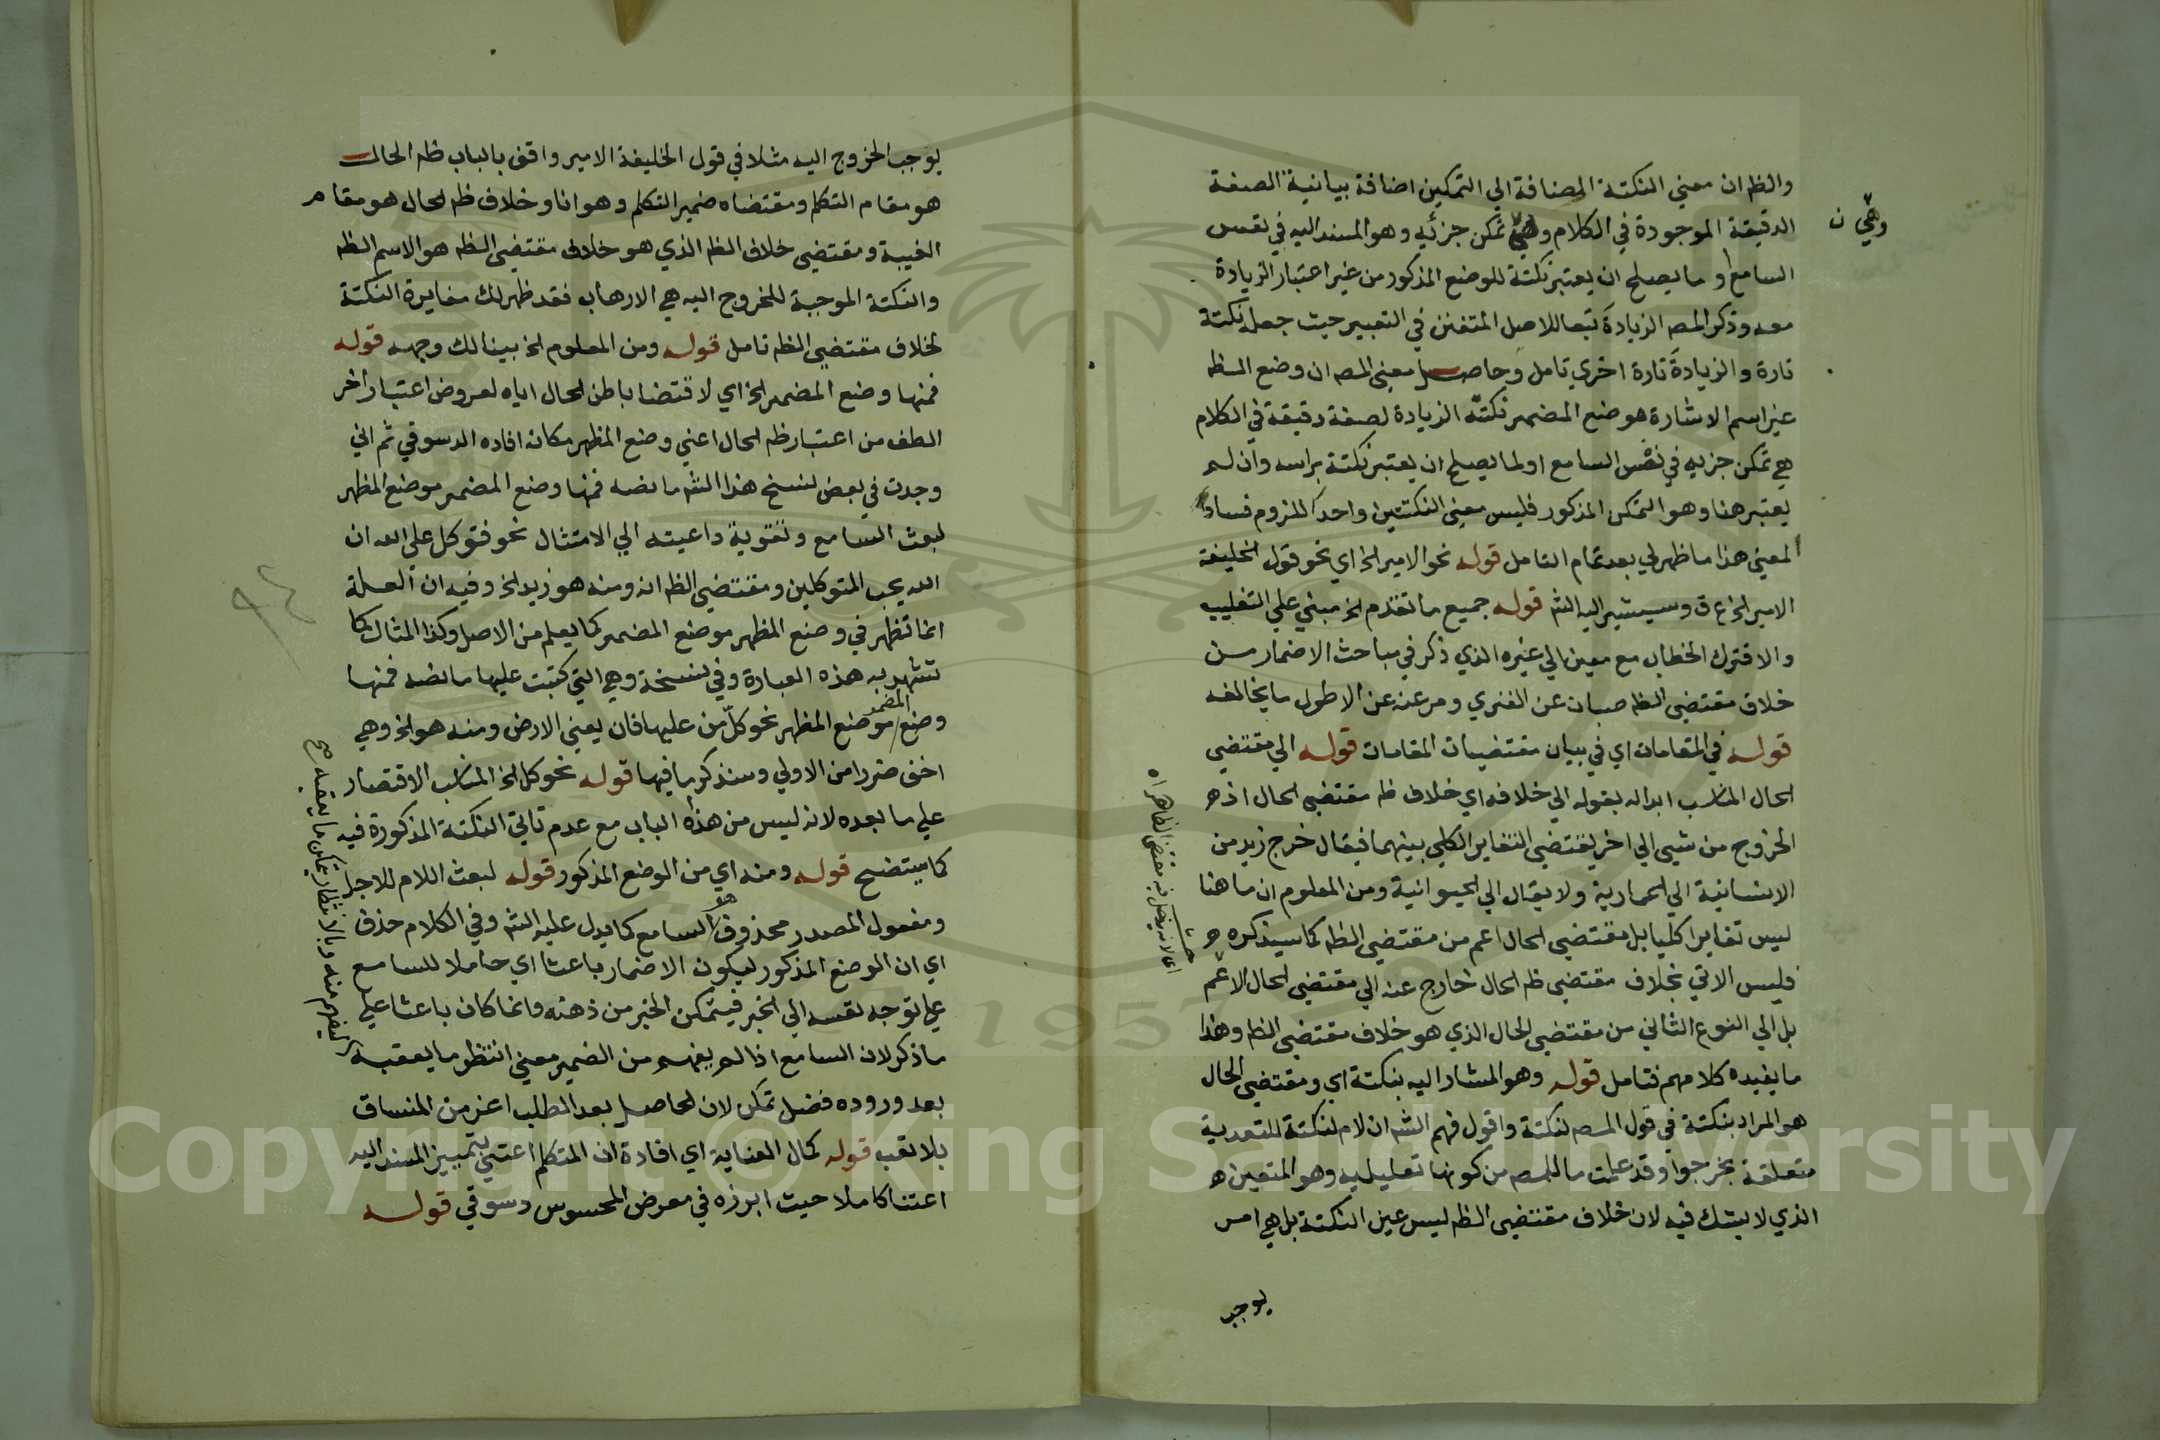 والظم ان معني النكتة المضافة الي التمكين اضافة بيانية الصفة
الدقيقة الموجودة في الكلام وهي تمكن جزئيه وهو المسند اليه في نفس
وهي ن
السامع او ما يصلح ان يعتبر نكتة للوضع المذكور من غير اعتبار الزيادة
معه وذكر المصم الزيادة تبعا للاصل المتفنن في التعبير حيث جعله نكتة
تارة والزيادة تارة اخري تامل وحاصل معني المصم ان وضع المظ
غير اسم الاشارة موضع المضمر نكتة الزيادة لصفة دقيقة في الكلام
هي تمكن جزيه في نفس السامع او لما يصلح ان يعتبر نكتة براسه وان لم
يعتبر هنا وهو التمكن المذكور فليس معني النكتتين واحدا للزوم فساد
المعني هذا ما ظهر لي بعد تمام التامل قوله نحو الامير الخ اي نحو قول الخليفة
الامير الخ ع ق وسيشير اليه الشم قوله جميع ما تقدم الخ مبني علي التغليب
والا فترك الخطاب مع معين الي غيره الذي ذكر في مباحث الاضمار من
خلاف مقتضي الظم صبان عن الفنري ومر عنه عن الاطول ما يخالفه
قوله في المقامات اي في بيان مقتضيات المقامات قوله الي مقتضي
الحال المناسب ابداله بقوله الي خلافه اي خلاف ظم مقتضي الحال اذ
الخروج من شيي الي اخر يقتضي التغاير الكلي بينهما فيقال خرج زيد من
الانسانية الي الحمارية ولا يقال الي الحيوانية ومن المعلوم ان ما هنا
ليس تغايرا كليا بل مقتضي الحال اعم من مقتضي الظم كما سيذكره
فليس الاتي بخلاف مقتضي ظم الحال خارج عنه الي مقتضي الحال الاعم
بل الي النوع الثاني من مقتضي الحال الذي هو خلاف مقتضي الظم وهذا
ما يفيده كلامهم فتامل قوله وهو المشار اليه بنكتة اي ومقتضي الحال
هو المراد بنكتة في قول المصم لنكتة واقول فهم الشم ان لام لنكتة للتعدية
متعلقة بخرجوا وقد علمت ما للمصم من كونها تعليليه وهو المتعين
الذي لا يشك فيه لان خلاف مقتضي الظم ليس عين النكتة بل هي امر
يوجب
يوجب الخروج اليه مثلا في قول الخليفة الامير واقف بالباب ظم الحال
هو مقام التكلم ومقتضاه ضمير التكلم وهو انا وخلاف ظم الحال هو مقام
الغيبة ومقتضي خلاف الظم الذي هو خلاف مقتضي الظم هو الاسم الظم
والنكتة الموجبة للخروج اليه هي الارهاب فقد ظهر لك مغايرة النكتة
لخلاف مقتضي الظم تامل قوله ومن المعلوم الخ بينا لك وجهه قوله
فمنها وضع المضمر الخ اي لاقتضا باطن الحال اياه لعروض اعتبار اخر
الطف من اعتبار ظم الحال اعني وضع المظهر مكانه افاده الدسوقي ثم اني
وجدت في بعض نسخ هذا الشم ما نصه فمنها وضع المضمر موضع المظهر
لبعث السامع وتقوية داعيته الي الامتثال نحو فتوكل علي الله ان
الله يحب المتوكلين ومقتضي الظم انه ومنه هو زيد الخ وفيه ان العلة
انما تظهر في وضع المظهر موضع المضمر كما يعلم من الاصل وكذا المثال كما
تشهد به هذه العبارة وفي نسخة وهي التي كتبت عليها ما نصه فمنها
وضع المضمر موضع المظهر نحو كل من عليها فان يعني الارض ومنه هو الخ وهي
اخف ضررا من الاولي وسنذكر ما فيها قوله نحو كل الخ المناسب الاقتصار
علي ما بعده لانه ليس من هذا الباب مع عدم تاتي النكتة المذكورة فيه
كما سيتضح قوله ومنه اي من الوضع المذكور قوله لبعث اللام للاجل
ومفعول المصدر محذوف هو السامع كما يدل عليه الشم وفي الكلام حذف
اي ان الوضع المذكور ليكون الاضمار باعثا اي حاملا للسامع
علي توجه نفسه الي الخبر فيتمكن الخبر من ذهنه وانما كان باعثا علي
ما ذكر لان السامع اذا لم يفهم من الضمير معني انتظر ما يعقبه
بعد وروده فضل تمكن لان الحاصل بعد الطلب اعز من المنساق
بلا تعب قوله كمال العناية اي افادة ان المتكلم اعتني بتمييز المسند اليه
اعتنا كاملا حيث ابرزه في معرض المحسوس دسوقي قوله
ليفهم منه وبالانتظار يتمكن ما يعقبه صح
Copyright © King Saud University
1957